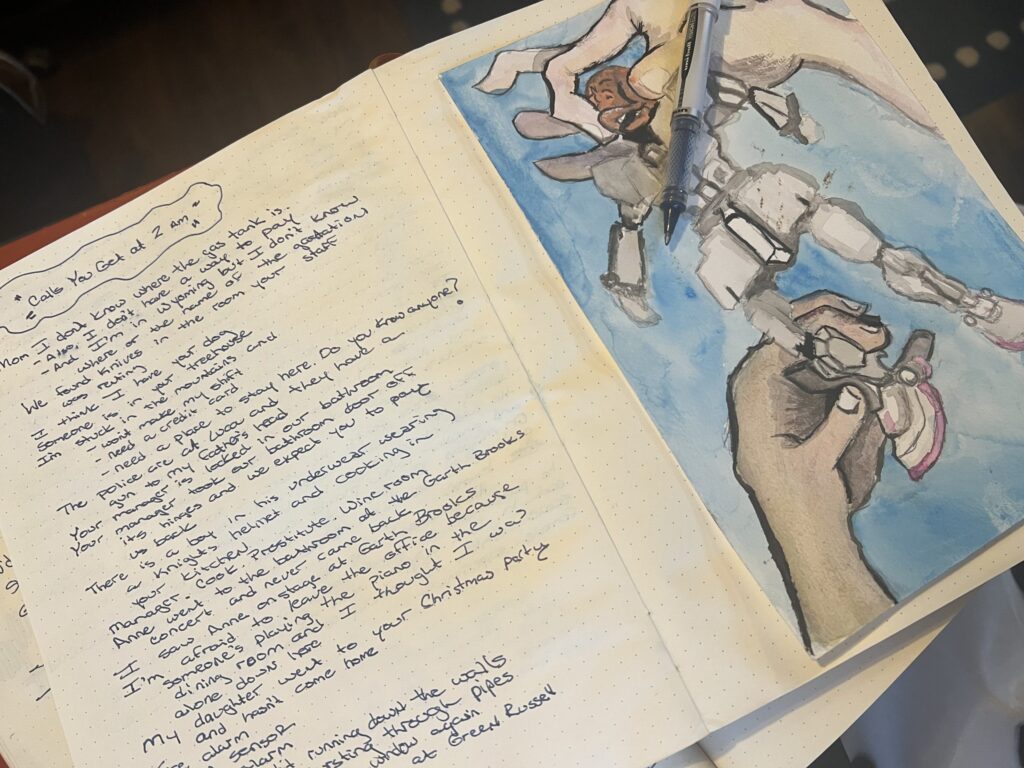 " Calls You Get at 2 am "
Mom I don't know where the gas tank is.
- Also, I don't have a way to pay
- And I'm in Wyoming but I don't know
where or the name of the gas station
We found Knives in the room your staff
was renting
I think I have your dog
Someone is in your treehouse
I'm stuck in the mountains and
- wont make my shift
- need a credit card
- need a place to stay here. Do you know anyone?
The Police are at Luca and they have a
gun to my Father's head
Your manager is locked in our bathroom
Your manager took our bathroom door off
its hinges and we expect you to pay
us back
There is a boy in his underwear wearing
a Knights helmet and cooking in
your Kitchen
manager. Cook. Prostitute. Wine room
Anne went to the bathroom at the Garth Brooks
concert and never came back
I saw Anne onstage at Garth Brooks
I'm afraid to leave the office because
someone's playing the piano in the
dining room and I thought I was
alone down here
My daughter went to your Christmas party
and hasn't come home
alarm sensor
alarm
running down the walls
bursting through pipes
window again
at Green Russell